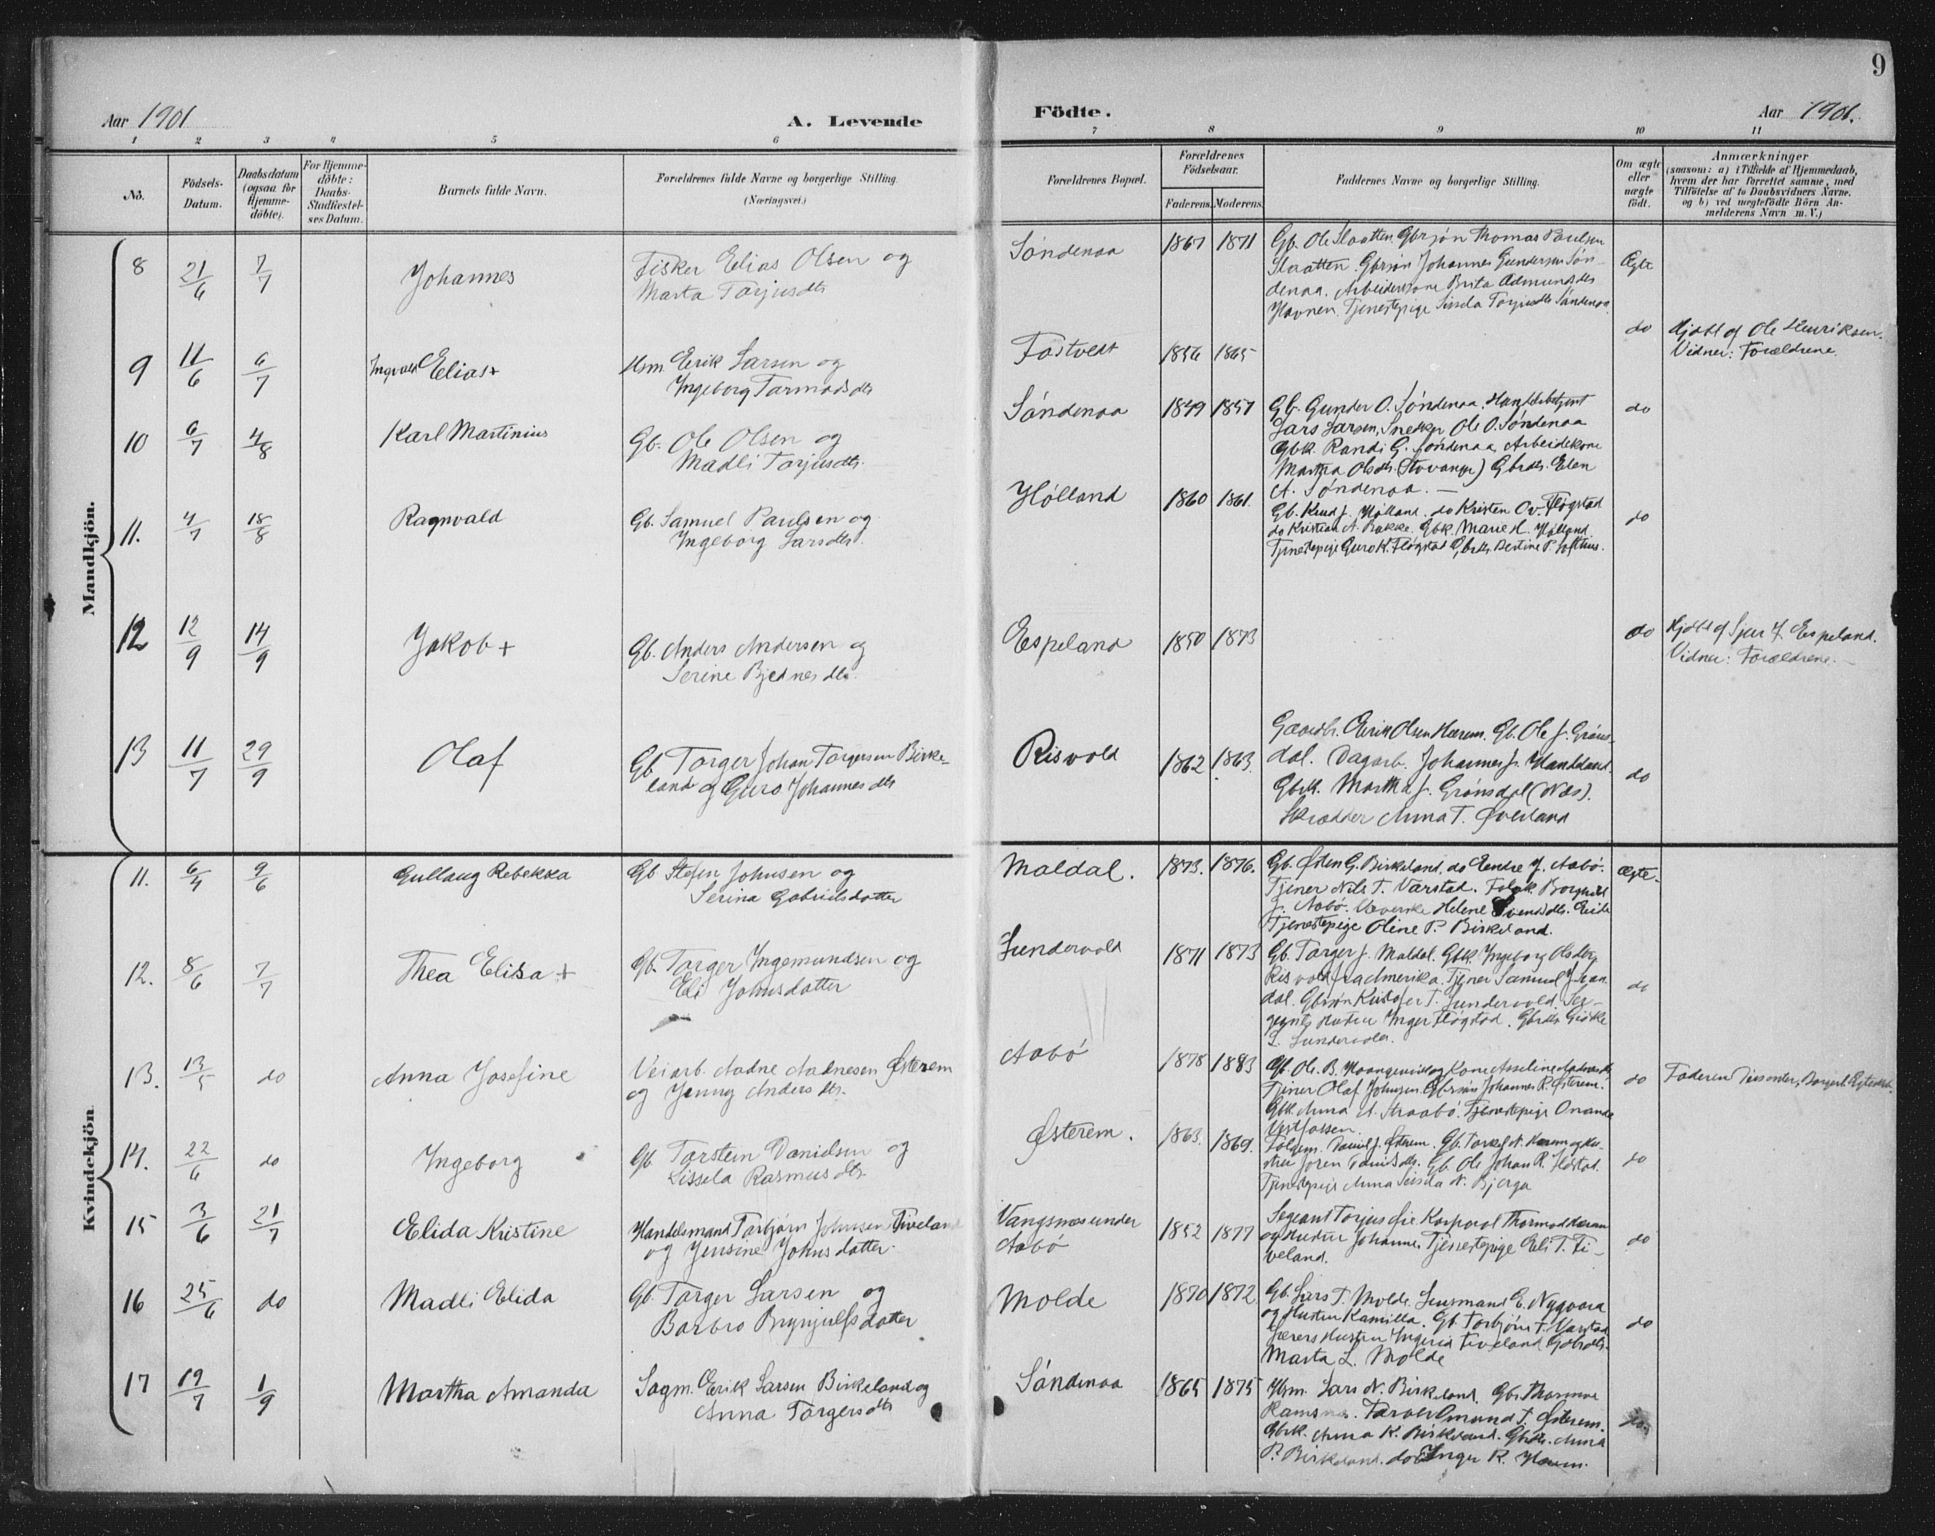 9
Aar 1901
A. Levende
Födte.
Aar 1901.
1 2 3 4 5 6 7 8 9 10 11
No.
Födsels-
Datum.
Daabsdatum
(ogsaa for
Hjemme-
döbte).
For Hjemme-
döbte:
Daabs-
Stadfæstel-
ses Datum.
Barnets fulde Navn.
Forældrenes fulde Navne og borgerlige Stilling.
(Næringsvei.)
Forældrenes Bopæl.
Forældrenes
Födselsaar.
Faderens. Moderens.
Faddernes Navne og borgerlige Stilling.
Om ægte
eller
uægte
födt.
Anmærkninger
(saasom: a) i Tilfælde af Hjemmedaab,
hvem der har forrettet samme, med
Tilföielse af to Daabsvidners Navne.
og b) ved uægtefödte Börn An-
melderens Navn m. V.)
Mandkjön.
8 21/6 7/7 Johannes
Fisker Elias Olsen og
Marta Torjusdtr
Söndenaa 1867 1871
Gb. Ole Slaatten Gbrsön Thomas Paulsen
Slaatten. Gbrsön Johannes Gundersen Sön-
denaa. Arbeiderkone Brita Admundsdtr
Havnen. Tjenestepige Sissela Torjusdtr Söndenaa
Ægte
9 11/6 6/7 Ingvald Elias +
Hsm Eerik Larsen og
Ingeborg Tormodsdtr
Tostvedt 1856 1865
do
Hjdbt af Ole Henriksen.
Vidner: Forældrene.
10 6/7 4/8 Karl Martinius
Gb. Ole Olsen og
Madli Torjusdtr.
Söndenaa 1849 1857
Gb. Gunder O. Söndenaa, Handelsbetjent
Lars Larsen, Snekker Ole O. Söndenaa
Gbk. Randi G. Söndenaa, Arbeidekone
Martha Olsdtr (Stavanger) Gbrdtr. Elen
A. Söndenaa.
do
11. 4/7 18/8 Ragnvald
Gb. Samuel Paulsen og
Ingeborg Larsdtr.
Hölland 1860 1861
Gb. Knud J. Hölland. do Kristen Ov. Flögstad
do Kristian A. Bakke. Gbk. Marie H. Hölland.
Tjenestepige Guro K. Flögstad Gbrdtr Bertine P. Lofthus.
do
12 12/9 14/9 Jakob +
Gb. Anders Andersen og
Serine Bjednesdtr.
Espeland 1850 1873
do
Hjdbt af Sjur J. Espeland.
Vidner: Forældrene.
13 11/7 29/9 Olaf
Gb Torger Johan Torgersen Birke-
land og Guro Johannesdtr
Risvold 1862 1863.
Gaardbr. Eerik Olsen Hærem. Gb. Ole J. Gröns-
dal. Dagarb. Johannes J. Handeland.
Gbrk. Martha J. Grönsdal (Næs).
Skrædder Anna T. Øverland
do
Kvindekjön.
11. 6/4 9/6 Gullaug Rebekka
Gb Stefen Johnsen og
Serina Gabrielsdatter
Maldal. 1873. 1876.
Gb. Østen G. Birkeland. do Eendre J. Aabö.
Tjener Nils T. Varstad. Folgk. Borgnild
J. Aabö. Væverske Helene Svendsdtr. Eide
Tjenestepige Oline P. Birkeland.
Ægte.
12. 8/6 7/7 Thea Elisa +
Gb. Torger Ingemundsen og
Eli Johnsdatter
Sundervold 1871 1873
Gb. Torger J. Maldal. Gbk. Ingeborg Olsdtr
Risvold fra Amerika. Tjener Samuel J. Aar-
dal. Gbrsön Kristofer T. Sundervold. Ser-
geants Hustru Inger Flögstad. Gbrdtr
L. Sundervold.
do
13. 13/5 do Anna Josefine
Veiarb. Aadne Aadnesen Østerem
og Jenny Andersdtr.
Aabö 1878 1883
Gb. Ole. B. Haangenvik og Kone Asseline
Tjener Olaf Johnsen Gbrsön Johannes R. Østerem.
Gbk. Anna A. Straabö. Tjenestepige Onanda
Vestfossen.
do
14. 22/6 do Ingeborg
Gb. Torstein Danielsen og
Sissela Rasmusdtr
Østerem. 1863. 1869.
Folgem. Daniel J. Østerem. Gb. Torkel N. Hærem og Hu-
stru Joren Danielsdtr. Gb. Ole Johan R. Högstad.
Tjenestepige Anna Sissela N. Bjerga
do
15 3/6 21/7 Elida Kristine
Handelsmand Torbjörn Johnsen Tiveland
og Jensine Johnsdatter.
Vangsnæs under
Aabö
1852 1877
Sergeant Torjus Øie Korporal Thormod Hæram
og Hustru Johanne. Tjenestepige Eli T. Ti-
veland.
do
16 25/6 do Madli Elida
Gb. Torger Larsen og
Barbro Brynjulfsdatter
Molde 1870 1872.
Gb. Lars T. Molde. Snusmand E. Nygaard
og Hustru Kamilla. Gb. Torbjörn T. Varstad
Lærers Hustru Ingerid Tiveland Gbrdtr.
Marta L. Molde
do
17 19/7 1/9 Martha Amanda
Sagm. Eerik Larsen Birkeland og
Anna Torgersdtr
Söndenaa 1865 1875
Hsm. Lars N. Birkeland. Gb. Thormod
Ramsnes. Farver Omund T. Østerem.
Gbrk. Anna K. Birkeland. Gbrdtr. Anna
P. Birkeland. do Inger R. Hærem.
do